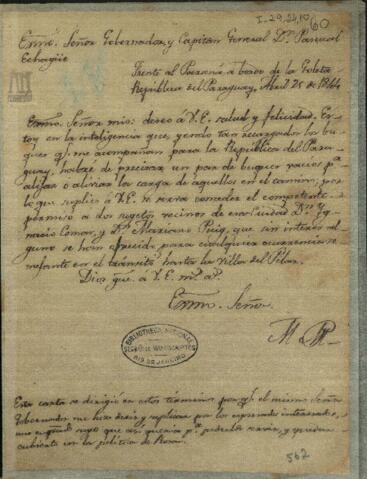 I-29,24,10
60
Exmo. Señor Gobernador, y Capitan General Dn. Pascual
Echagüe
Frente al Paraná a bordo de la Goleta
República del Paraguay, Abril 25 de 1844
Exmo. Señor mio: deseo á V.E. salud y felicidad. Es-
toy en la inteligencia que, yendo tan recargados los bu-
ques q. me acompañan para la República del Para-
guay, habré de precisar un par de buques vacios pa.
alijar o aliviar la carga de aquellos en el camino; por
lo que suplico á V.E. se sirva conceder el competente
permiso a dos sujetos vecinos de esa Ciudad Dn. Ig-
nacio Comas, y Dn. Mariano Puig, que sin interés al-
guno se han ofrecido para cualquiera ocurrencia se-
mejante en el tránsito hasta la Villa del Pilar.
Dios gue. á V.E. ms. as.
Exmo. Señor
M R
BIBLIOTHECA NACIONAL
SECÇÃO DE MANUSCRIPTOS
RIO DE JANEIRO
Esta carta se dirigió en estos términos porq. el mismo Señor
Gobernador me hizo decir y suplicar por los expresados interesados,
que así quería pa. poderlo hacer, y quedar
cubierto con la política de Rosas.
562